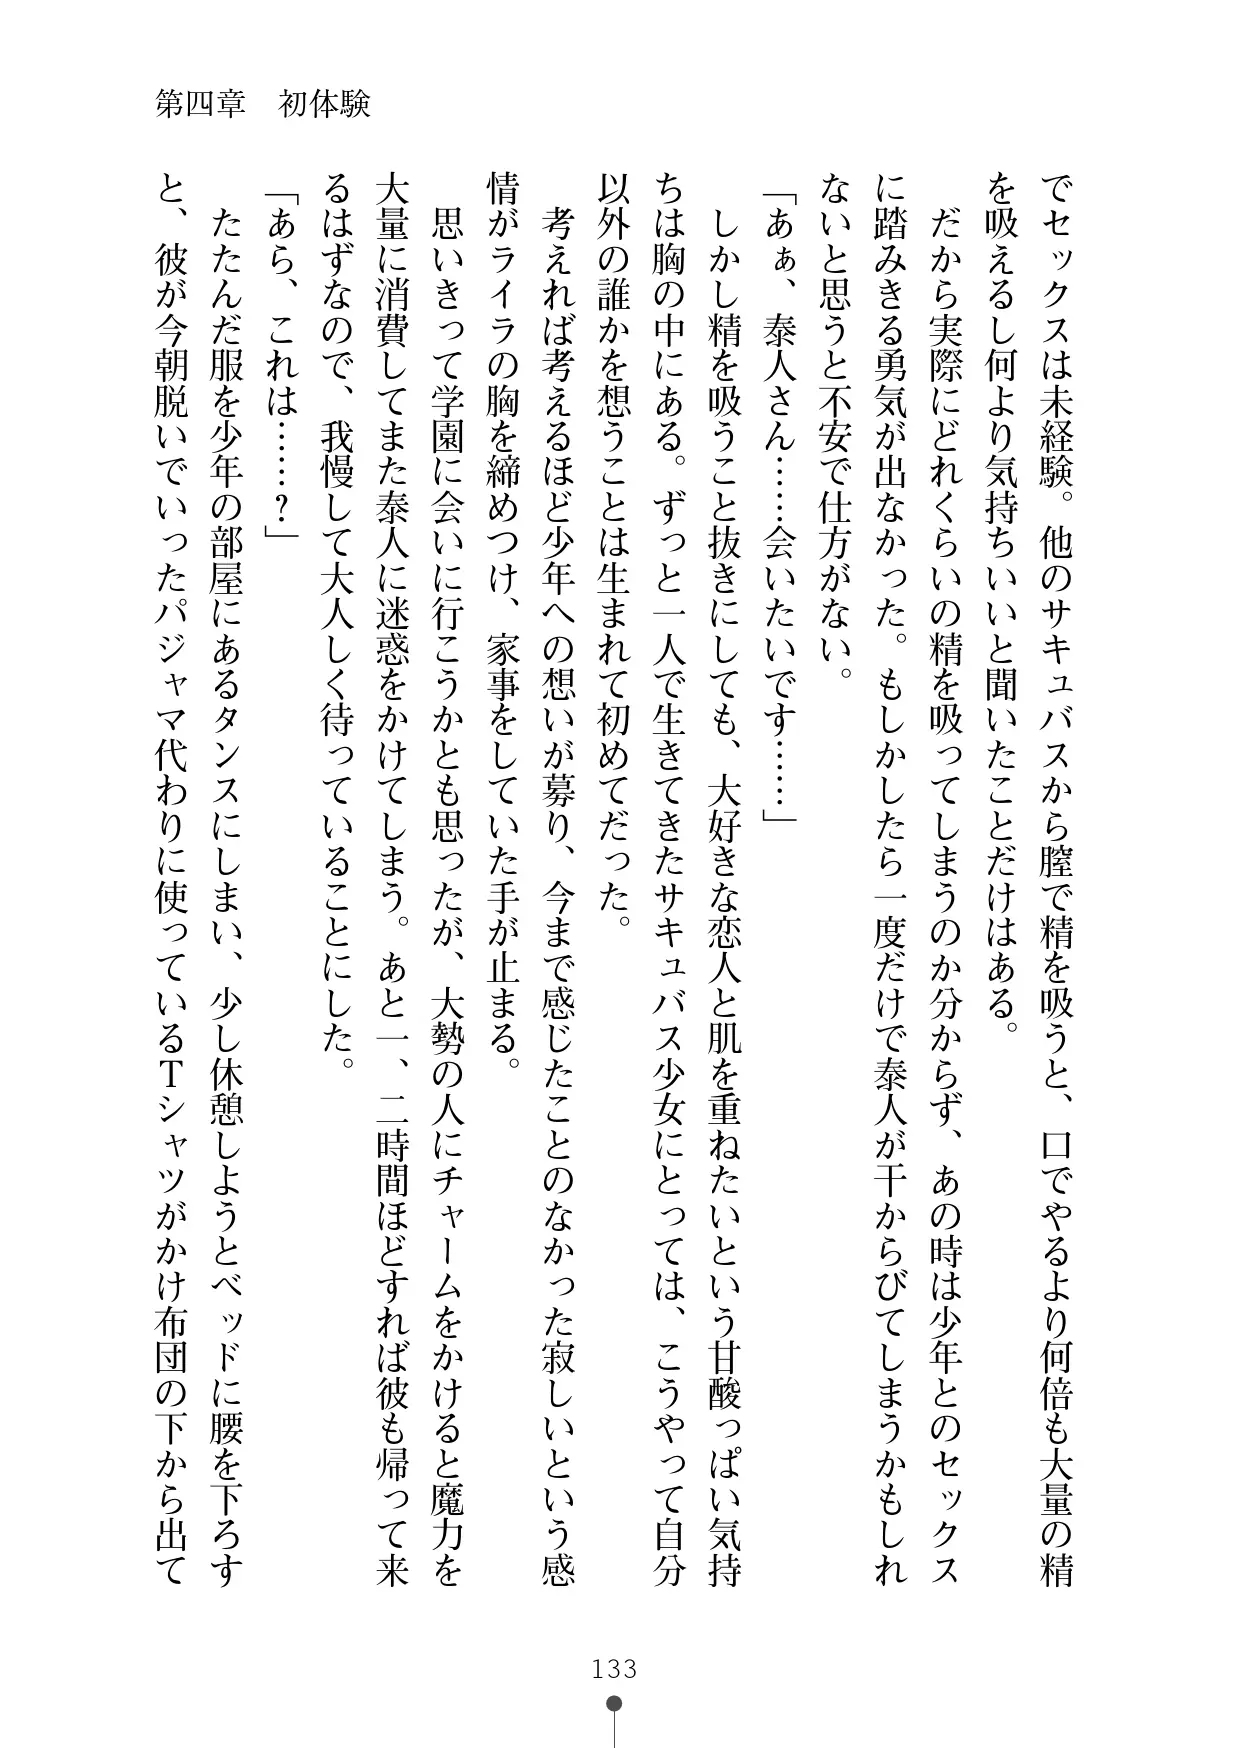 第四章　初体験
でセックスは未経験。他のサキュバスから膣で精を吸うと、口でやるより何倍も大量の精
を吸えるし何より気持ちいいと聞いたことだけはある。
　だから実際にどれくらいの精を吸ってしまうのか分からず、あの時は少年とのセックス
に踏みきる勇気が出なかった。もしかしたら一度だけで泰人が干からびてしまうかもしれ
ないと思うと不安で仕方がない。
「あぁ、泰人さん……会いたいです……」
　しかし精を吸うこと抜きにしても、大好きな恋人と肌を重ねたいという甘酸っぱい気持
ちは胸の中にある。ずっと一人で生きてきたサキュバス少女にとっては、こうやって自分
以外の誰かを想うことは生まれて初めてだった。
　考えれば考えるほど少年への想いが募り、今まで感じたことのなかった寂しいという感
情がライラの胸を締めつけ、家事をしていた手が止まる。
　思いきって学園に会いに行こうかとも思ったが、大勢の人にチャームをかけると魔力を
大量に消費してまた泰人に迷惑をかけてしまう。あと一、二時間ほどすれば彼も帰って来
るはずなので、我慢して大人しく待っていることにした。
「あら、これは……？」
　たたんだ服を少年の部屋にあるタンスにしまい、少し休憩しようとベッドに腰を下ろす
と、彼が今朝脱いでいったパジャマ代わりに使っているTシャツがかけ布団の下から出て
133